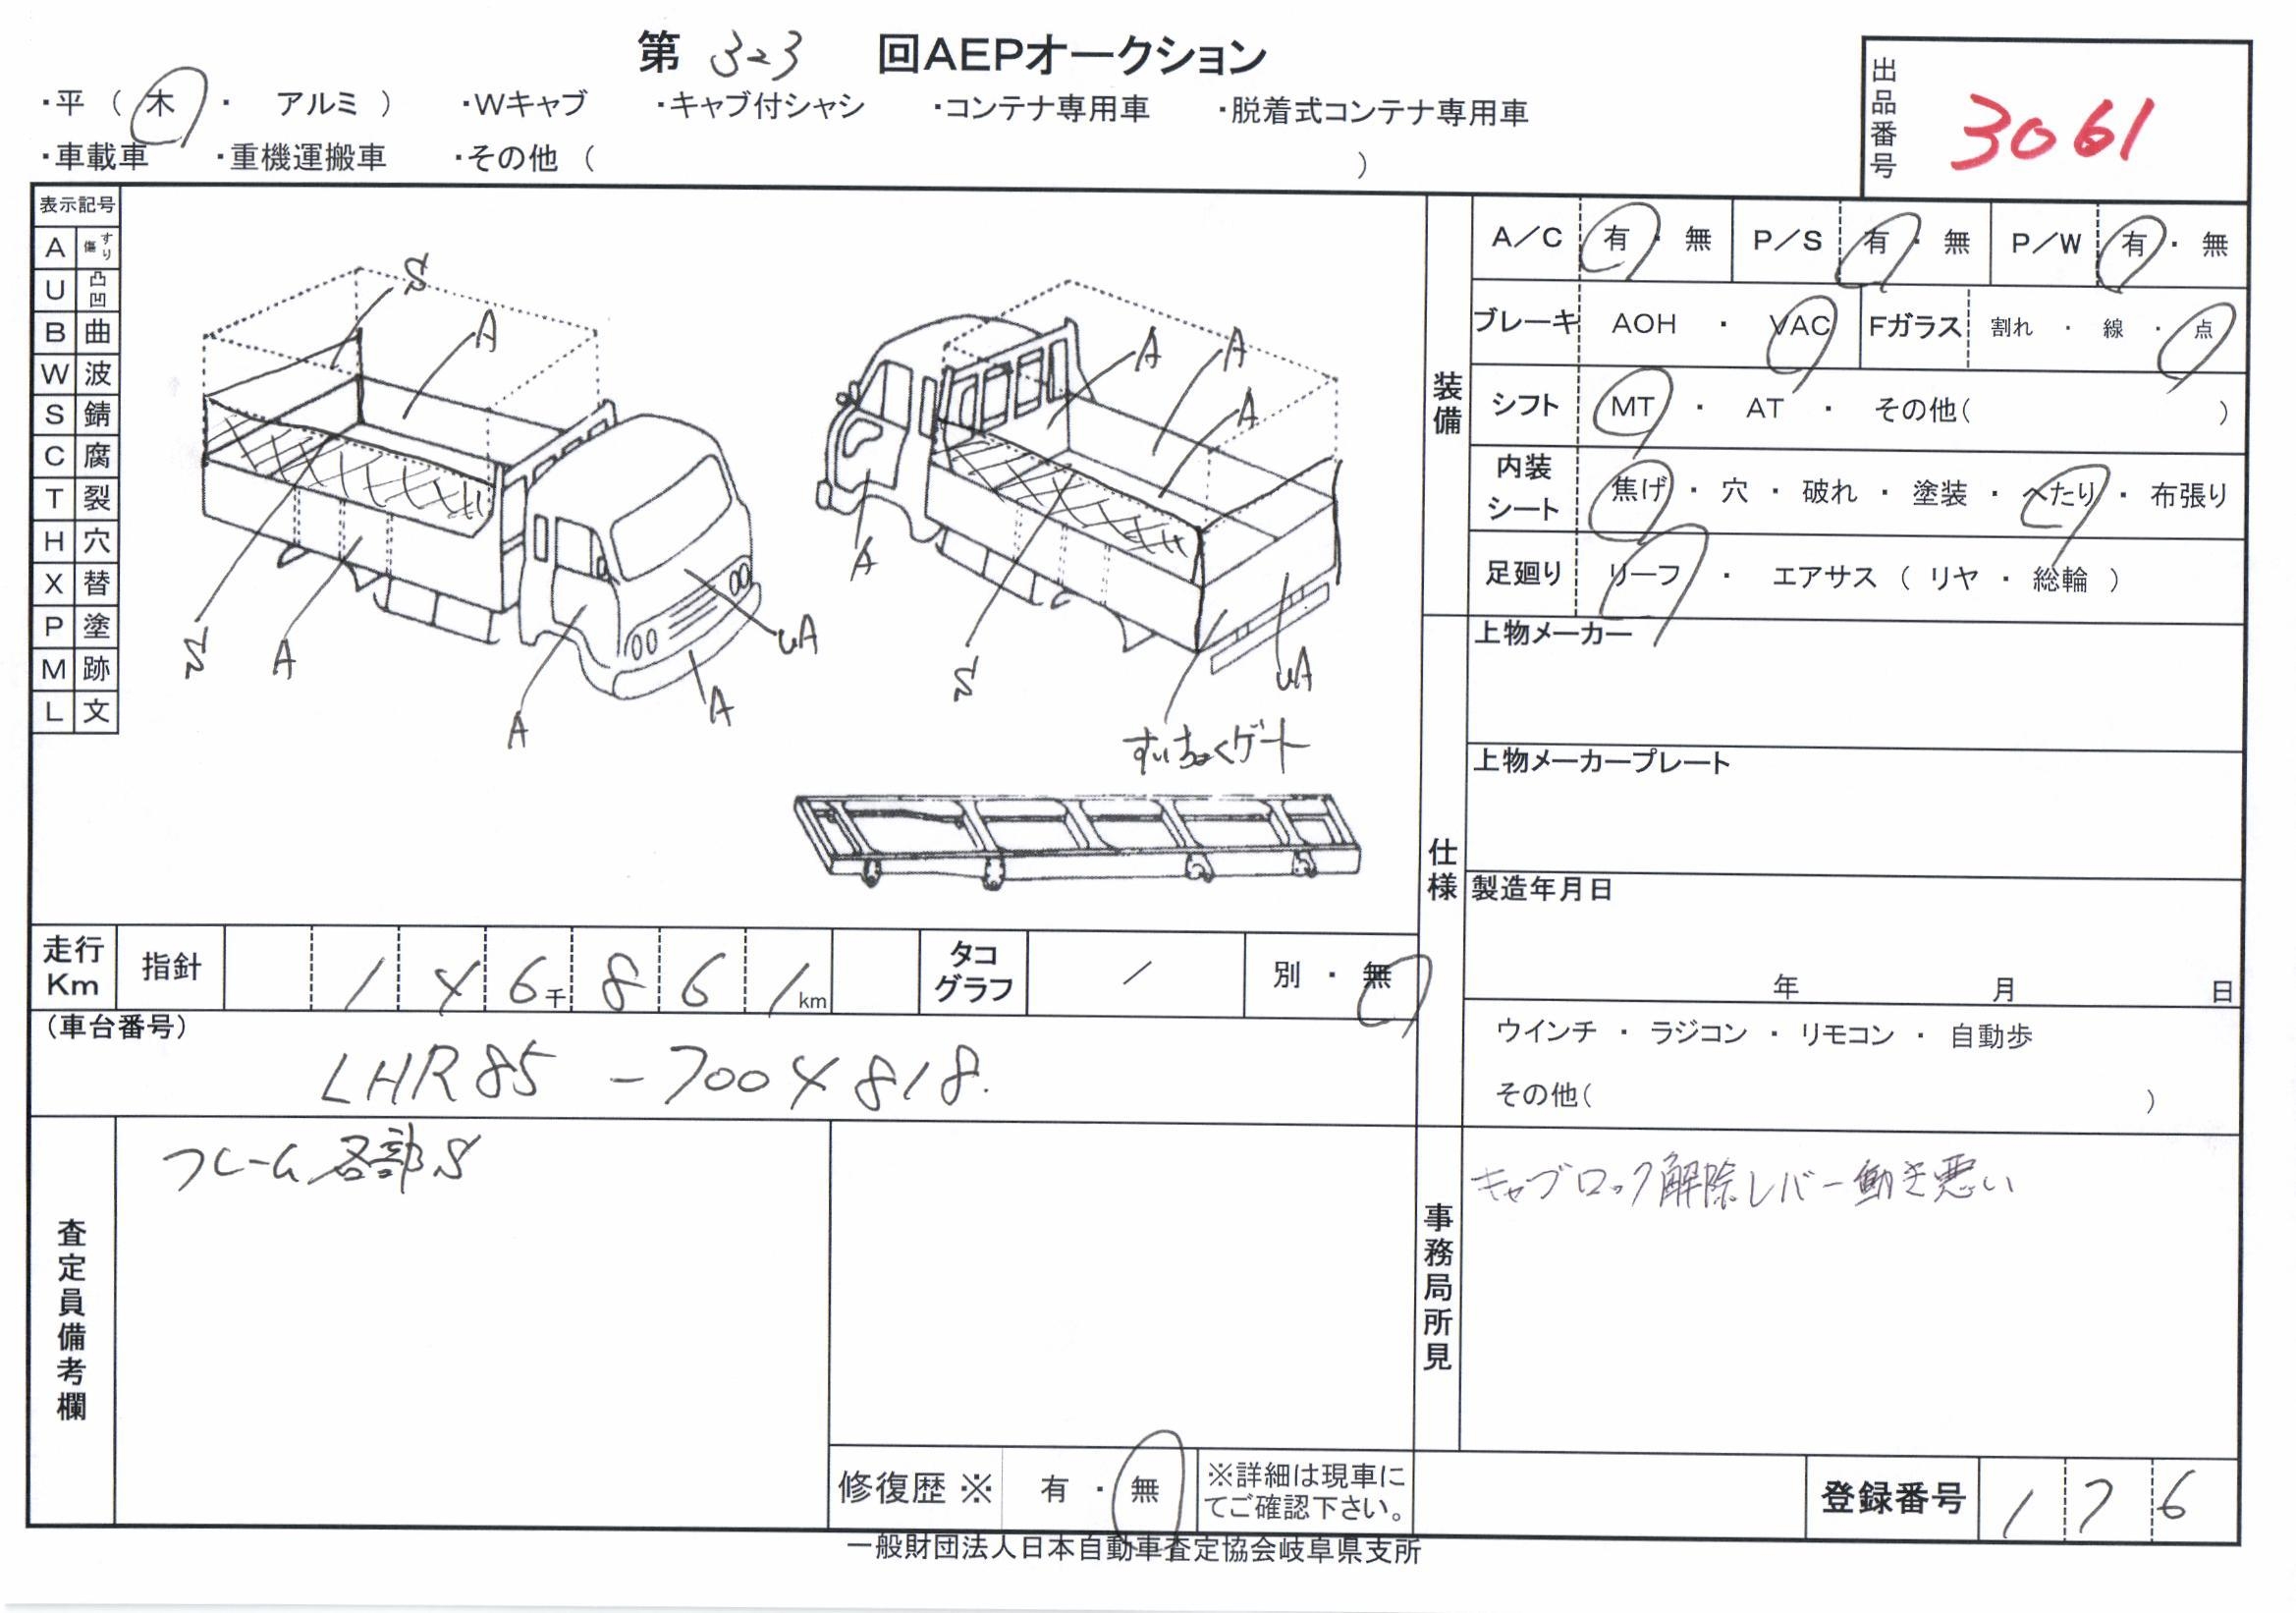 第 323 回AEPオークション
・平 ( 木 ・ アルミ ) ・Wキャブ ・キャブ付シャシ ・コンテナ専用車 ・脱着式コンテナ専用車
・車載車 ・重機運搬車 ・その他 ( )
出品番号 3061
表示記号
A すり傷
U 凸凹
B 曲
W 波
S 錆
C 腐
T 裂
H 穴
X 替
P 塗
M 跡
L 文
S
A
S
A
A
UA
A
A
A
A
A
S
UA
すいちょくゲート
装備
A/C 有・無 P/S 有・無 P/W 有・無
ブレーキ AOH ・ VAC Fガラス 割れ ・ 線 ・ 点
シフト MT ・ AT ・ その他( )
内装シート 焦げ ・ 穴 ・ 破れ ・ 塗装 ・ へたり ・ 布張り
足廻り リーフ ・ エアサス ( リヤ ・ 総輪 )
仕様
上物メーカー
上物メーカープレート
製造年月日
年 月 日
ウインチ ・ ラジコン ・ リモコン ・ 自動歩
その他( )
走行Km 指針 146千861km タコグラフ / 別 ・ 無
(車台番号)
LHR85-7004818.
査定員備考欄
フレーム各部S
事務局所見
キャブロック解除レバー動き悪い
修復歴※ 有 ・ 無 ※詳細は現車にてご確認下さい。
登録番号 176
一般財団法人日本自動車査定協会岐阜県支所